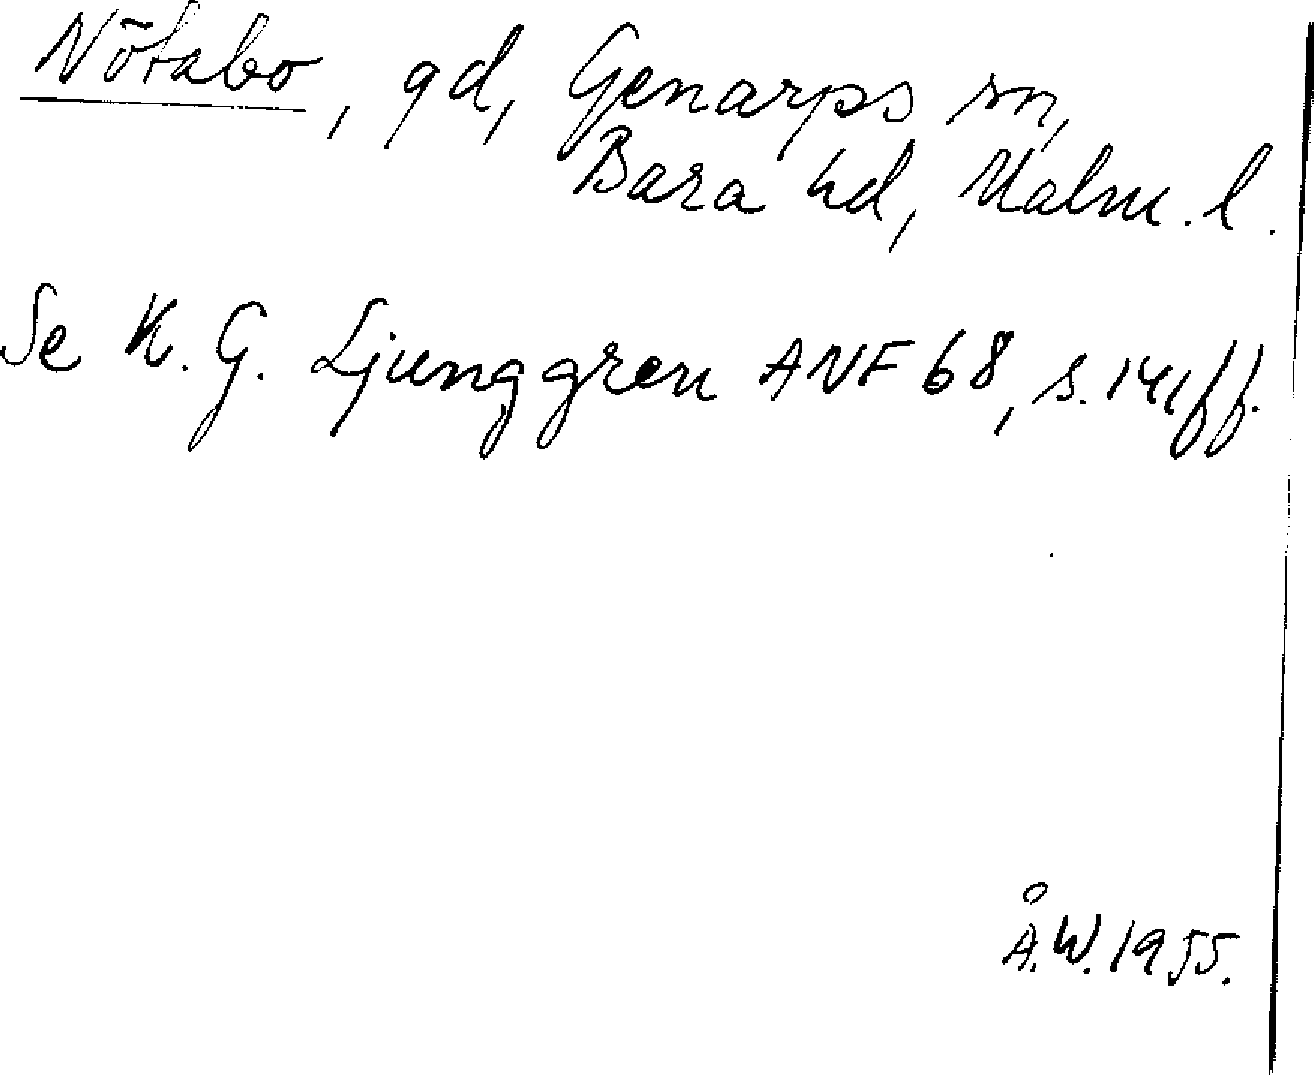 Nötabo, gd, Genarps sn,
Bara hd, Malm. l.
Se K. G. Ljunggren ANF 68, s. 141ff.
Å.W. 1955.